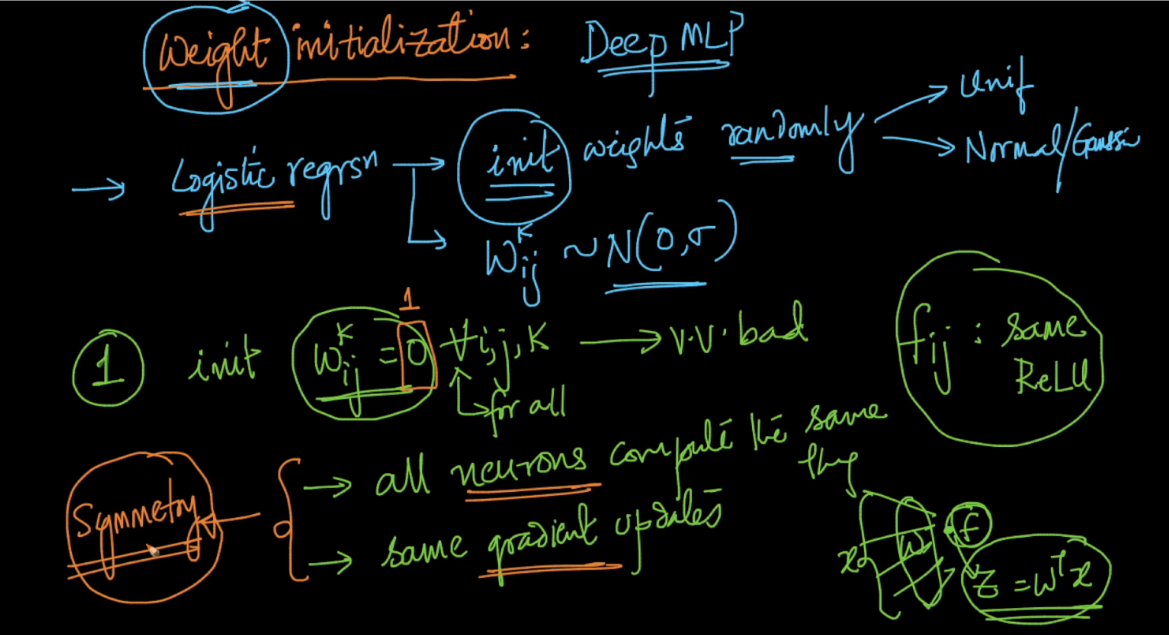 Weight initialization: Deep MLP
→ Logistic regrsn → init weights randomly → Unif
→ Normal/Gaussi
→ W_ij^k ~ N(0,σ)
1
① init W_ij^k = 0 ∀i,j,k → v.v. bad
↳ for all
f_ij : same
ReLU
Symmetry ← { → all neurons compute the same
thg
→ same gradient updates
x W f
z = wᵀx